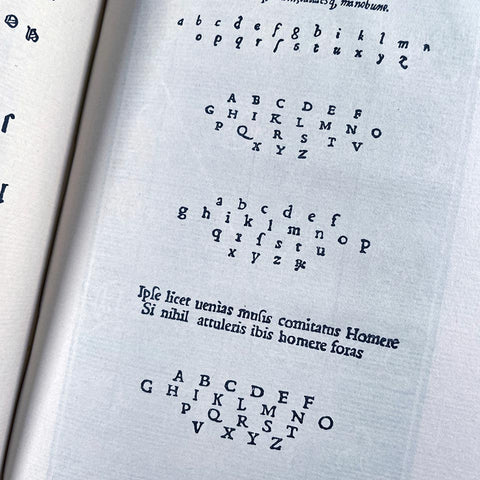 a b c d e f g h i k l m n
o p q r ſ s t u x y z
A B C D E F
G H I K L M N O
P Q R S T V
X Y Z
a b c d e f
g h i k l m n o p
q r ſ s t u
x y z ꝝ
Ipſe licet uenias muſis comitatus Homere
Si nihil attuleris ibis homere foras
A B C D E F
G H I K L M N O
P Q R S T
V X Y Z